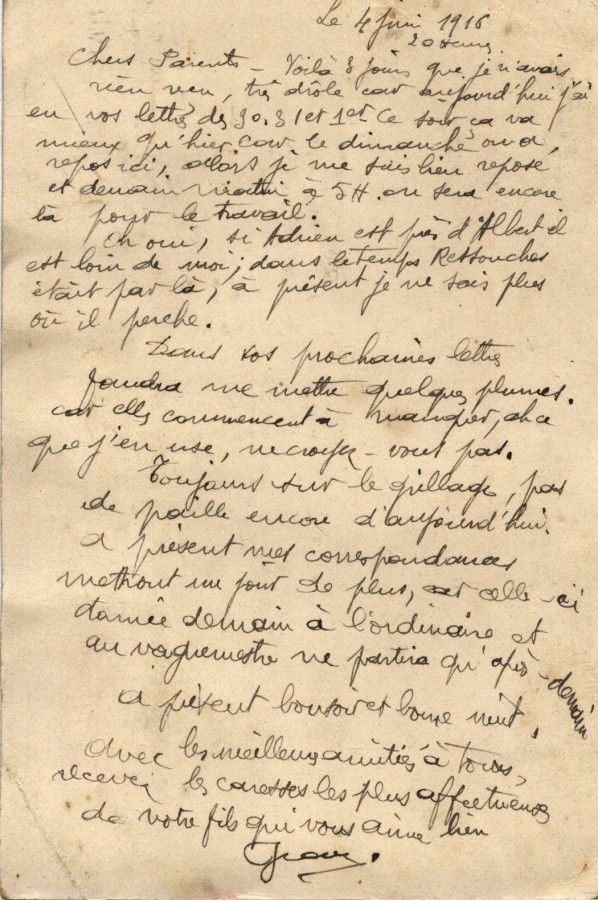 Le 4 juin 1916
20 heures
Chers Parents - Voilà 3 jours que je n'avais
rien reçu, très drôle car aujourd'hui j'ai
eu vos lettres des 30. 31 et 1er Ce soir ça va
mieux qu'hier car le dimanche on a
repos ici, alors je me suis bien reposé
et demain matin à 5H. on sera encore
là pour le travail.
Eh oui, si Adrien est près d'Albert il
est loin de moi ; dans le temps Ressouches
était par là, à présent je ne sais plus
où il perche.
Dans vos prochaines lettres
faudra me mettre quelques plumes.
car elles commencent à manquer, ah ce
que j'en use, ne croyez-vous pas.
Toujours sur le grillage, pas
de paille encore d'aujourd'hui.
A présent mes correspondances
mettront un jour de plus, car celle-ci
donnée demain à l'ordinaire et
au vaguemestre ne partira qu'après-demain
A présent bonsoir et bonne nuit,
avec les meilleures amitiés à tous,
recevez les caresses les plus affectueuses
de votre fils qui vous aime bien